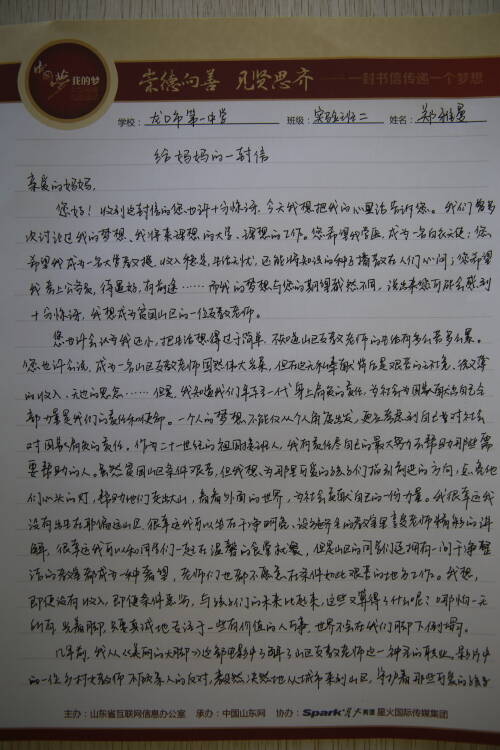 中国梦 我的梦
崇德向善 见贤思齐 ——一封书信传递一个梦想
学校: 龙口市第一中学 班级: 实验班二 姓名: 郑
给妈妈的一封信
亲爱的妈妈,
您好!收到这封信的您也许十分惊讶,今天我想把我的心里话告诉您。我们曾多
次讨论过我的梦想,我将来理想的大学、理想的工作。您希望我学医,成为一名白衣天使;您
希望我成为一名大学教授,收入稳定,生活无忧,还能将知识的种子播散在人们心间;您希望
我考上公务员,待遇好,有前途……而我的梦想与您的期望截然不同,说出来您可能会感到
十分惊讶,我想成为贫困山区的一位支教老师。
您也许会认为我还小,把生活想得过于简单,不知道山区支教老师的生活有多么苦多么累。
您也许会说,成为一名山区支教老师固然伟大名家,但在这光和背后是艰苦的环境,微薄
的收入,无边的思念……但是,我知道我们年轻一代身上肩负的责任,为社会为国家贡献出自己全
部力量是我们的责任和使命。一个人的梦想不能仅从个人角度出发,更应考虑到自己对社会
对国家肩负的责任。作为二十一世纪的祖国接班人,我有责任尽自己的最大努力去帮助那些需
要帮助的人。虽然贫困山区条件艰苦,但我想为那里可爱的孩子们指引前进的方向,点亮他
们心头的灯,帮助他们走出大山,看看外面的世界,为社会贡献自己的一份力量。我很幸运我
没有出生在那偏远山区,很幸运我可以坐在干净明亮、设备齐全的教室里听老师精彩的讲
解,很幸运我可以和同学们一起在温馨的食堂就餐,但是山区的同学们连拥有一间干净整
洁的教室都成为一种奢望,老师们也都不愿意在条件如此艰苦的地方工作。我想,
即使没有收入,即使条件恶劣,与孩子们的未来比起来,这些又算得了什么呢?哪怕一无
所有,光着脚,只要真诚地专注于一些有价值的人与事,世界亦会在我们脚下
几年前,我从《美丽的大脚》这部电影中了解了山区支教老师这一神圣的职业。影片中
的一位乡村女教师不顾家人的反对,毅然决然地从城市来到山区,守护着那些可爱的孩子
主办:山东省互联网信息办公室 承办:中国山东网 协办:Spark 星火英语 星火国际传媒集团